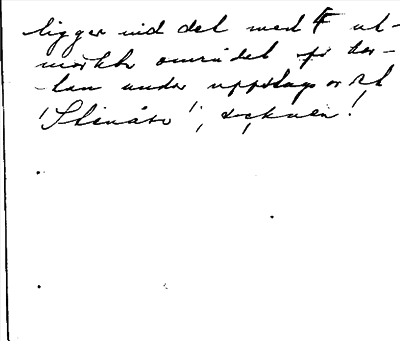 ligger vid det med F ut-
märkta området på kar-
tan under uppslagsordet
'Stenåsa', socknen!